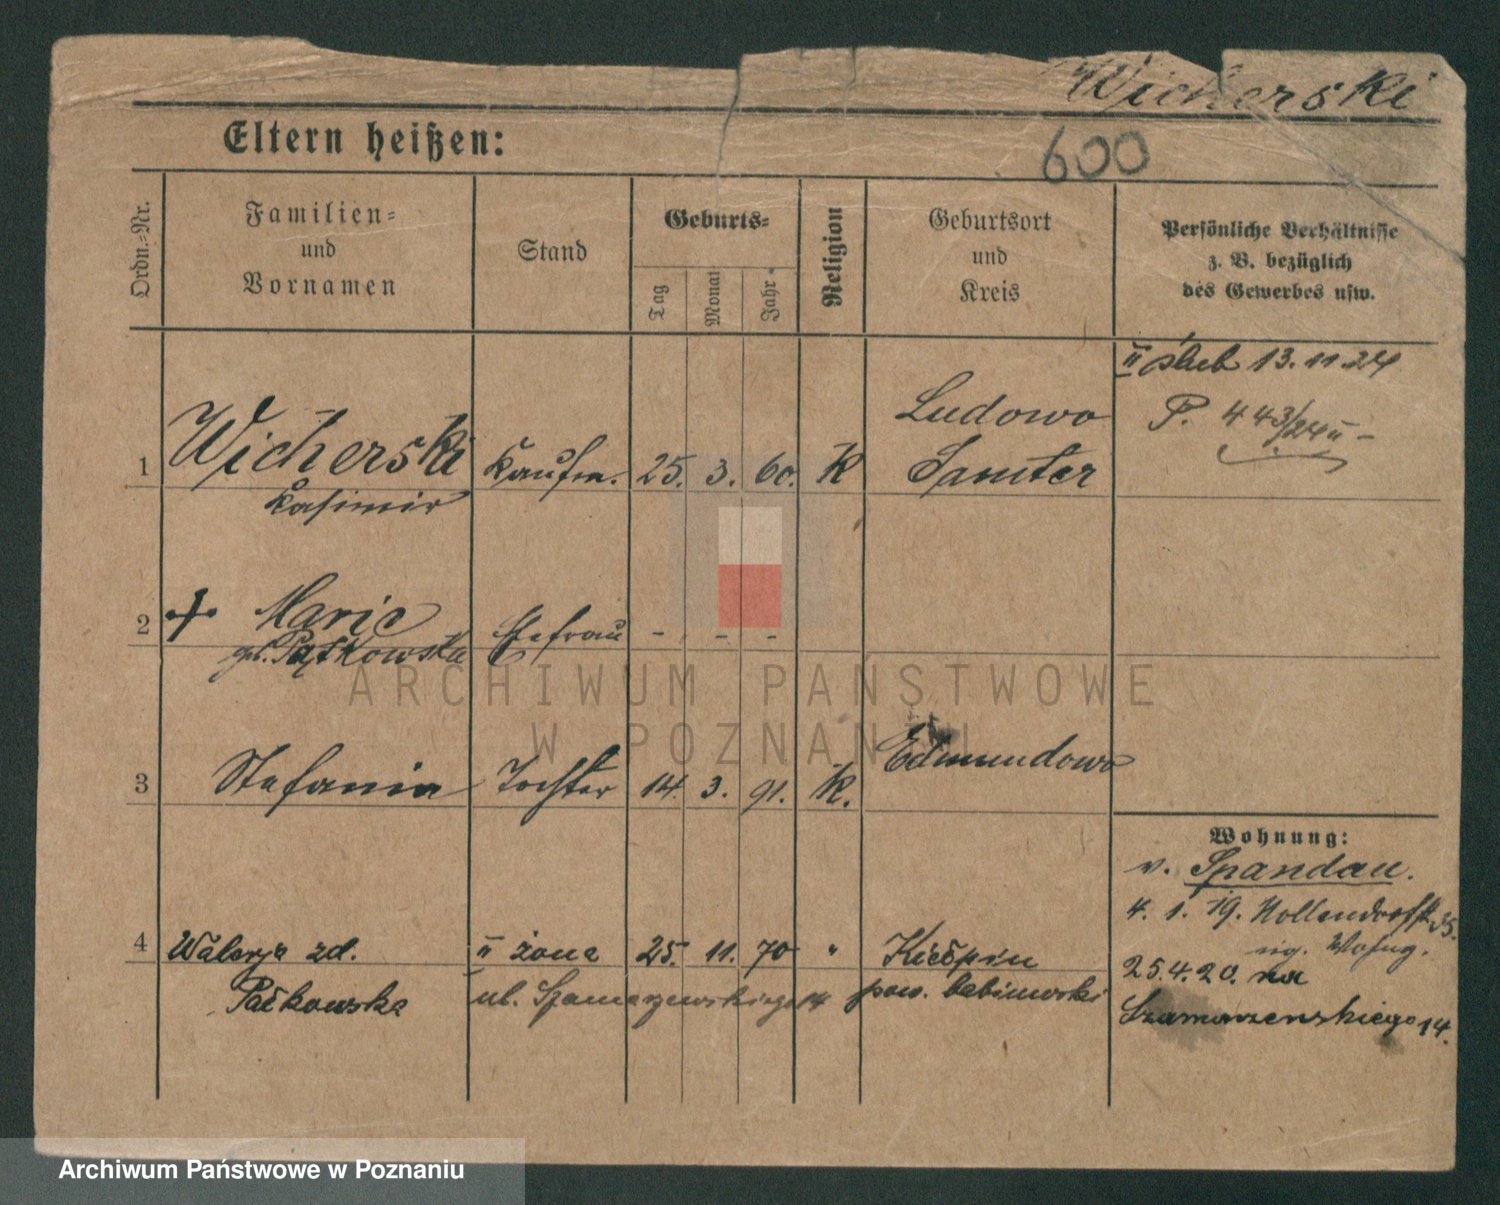 Wicherski
Eltern heißen:
600
Ordn.-Nr.
Familien-
und
Vornamen
Stand
Geburts-
Tag
Monat
Jahr
Religion
Geburtsort
und
Kreis
Persönliche Verhältnisse
z. B. bezüglich
des Gewerbes usw.
II ślub 13.11.24
P. 443/24 II -
1 Wicherski Kaufm. 25. 3. 60. K Ludowo
Kasimir Samter
2 + Marie Ehefrau - - -
gb. Pątkowska
3 Stefania Tochter 14. 3. 91. K. Edmundowo
Wohnung:
v. Spandau.
4. 1. 19. Hollendorffstr. 35.
eig. Wohng.
25.4.20. na
Szamarzewskiego 14.
4 Walerja zd. II żona 25. 11. 70 " Kiełpin
Pałkowska ul. Szamarzewskiego 14 pow. babimojski
ARCHIWUM PAŃSTWOWE
W POZNANIU
Archiwum Państwowe w Poznaniu